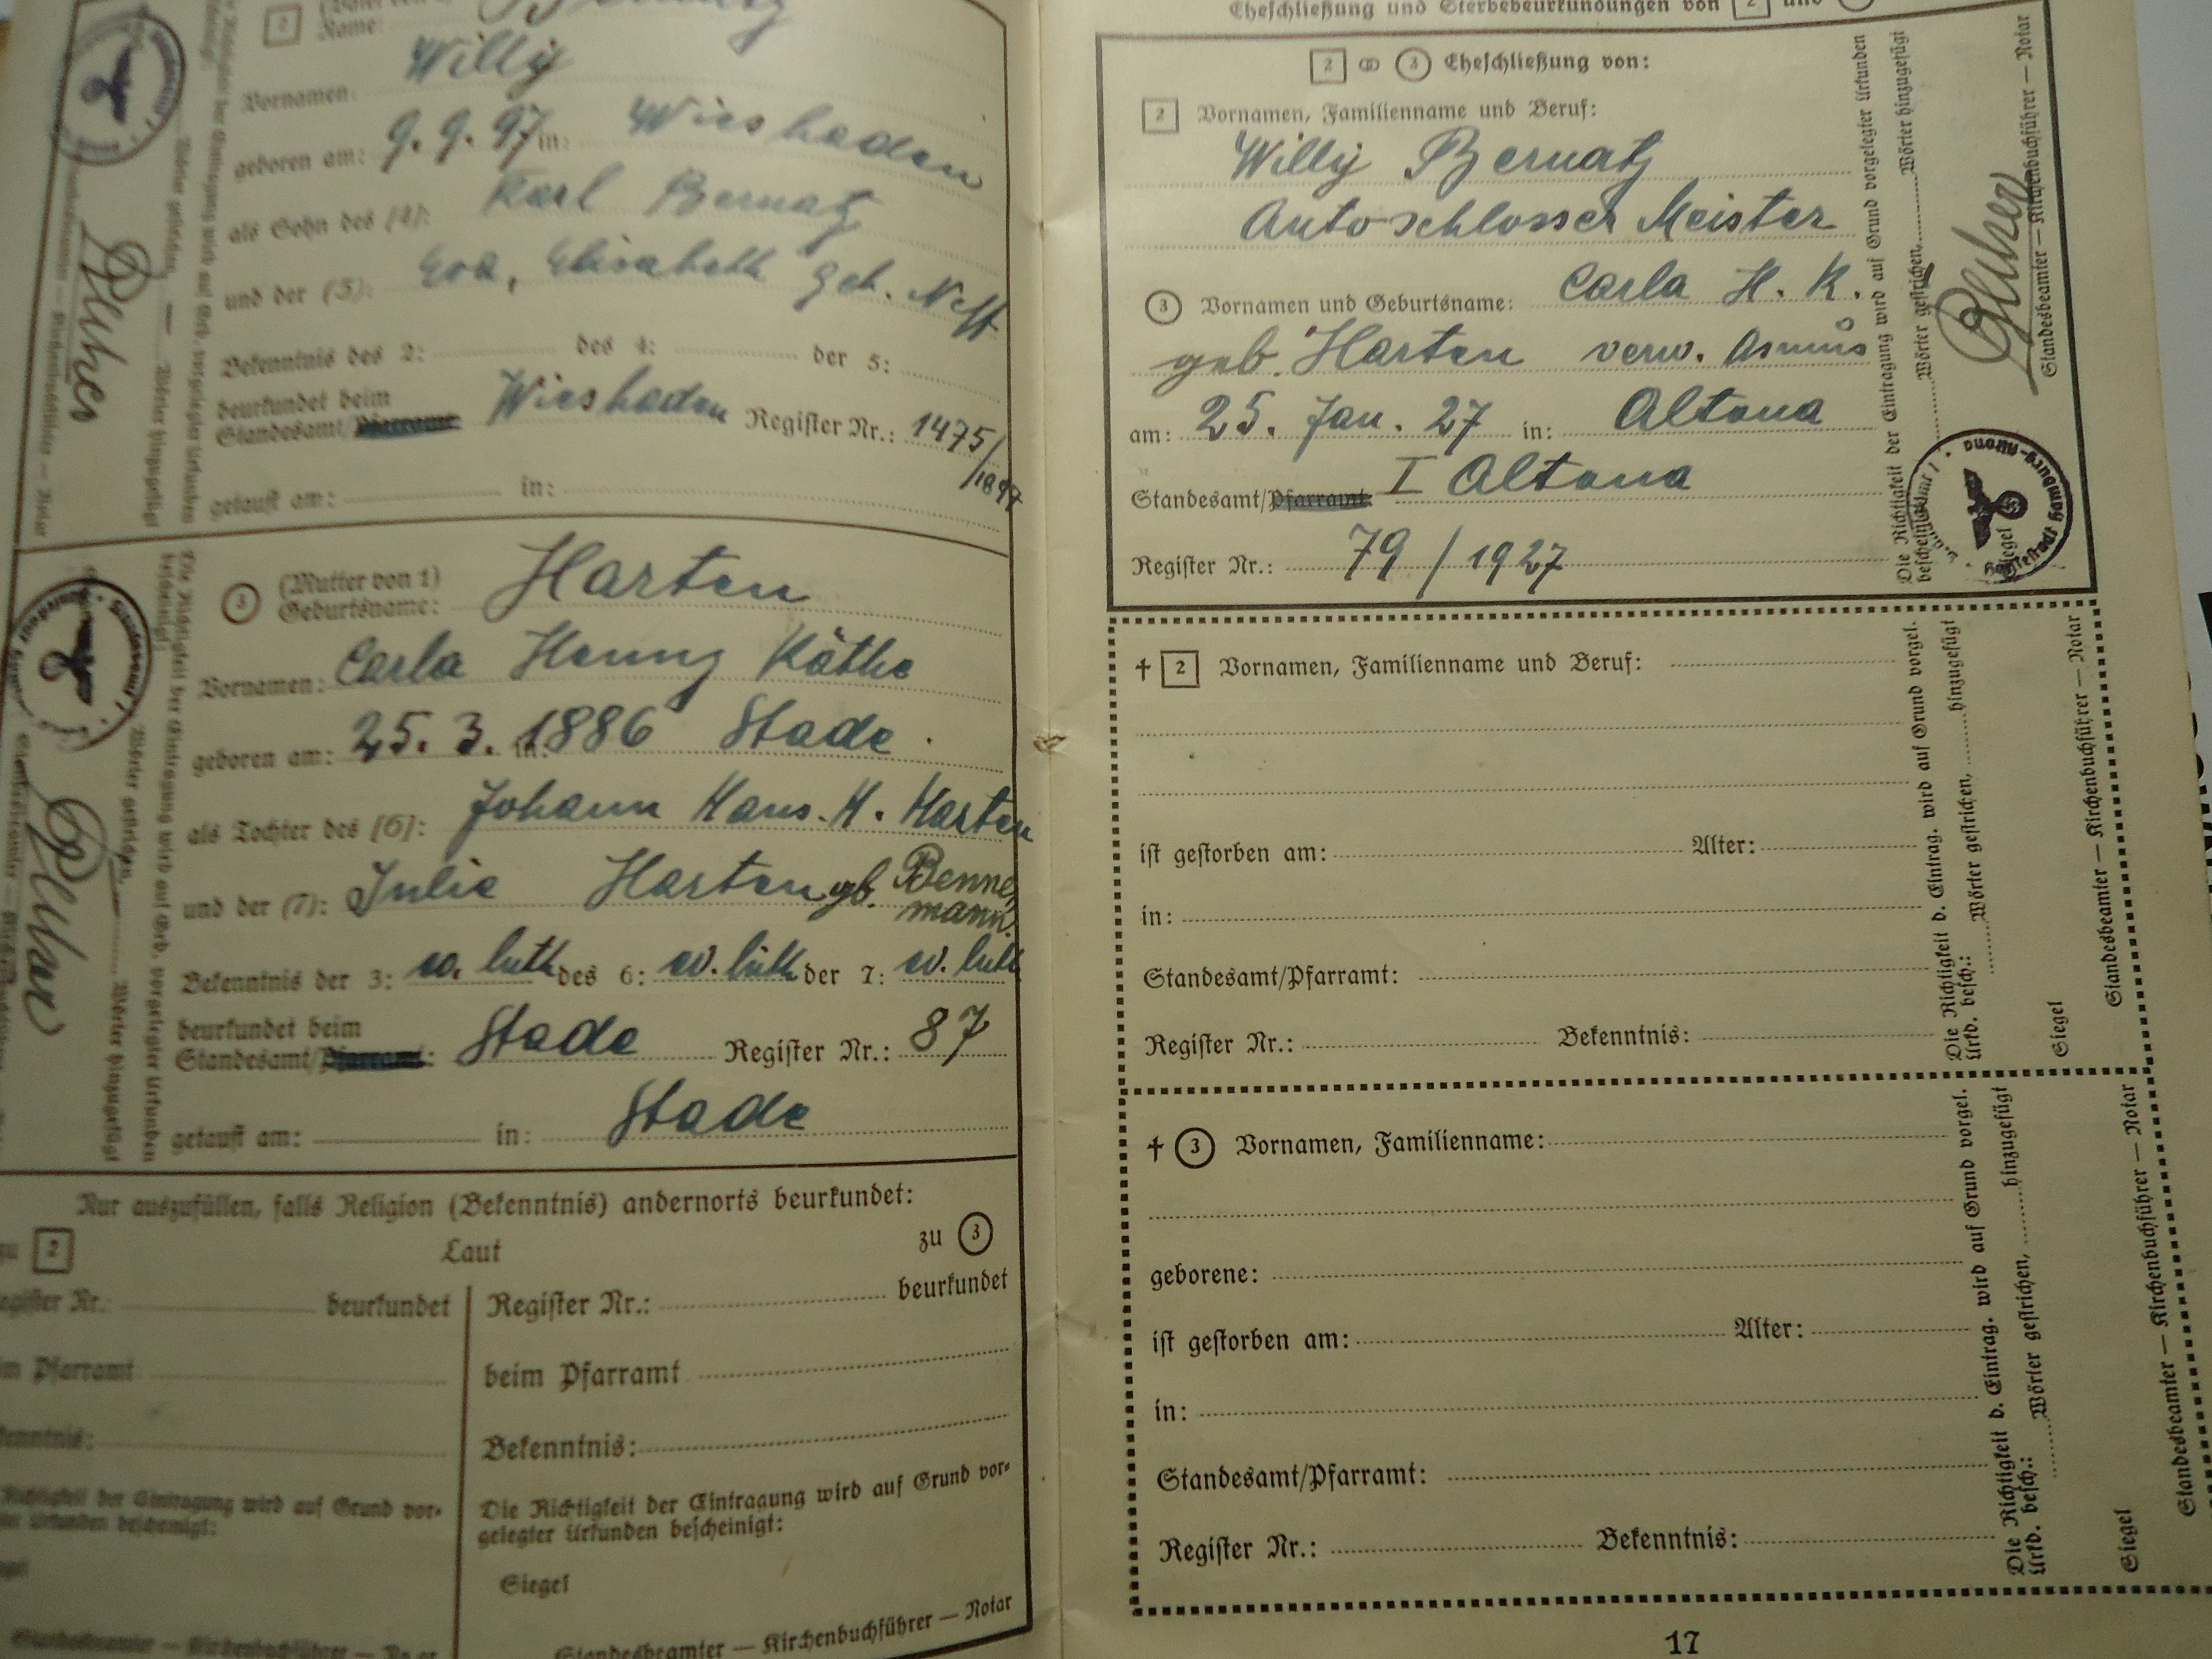 2 Name: Bernatz
Vornamen: Willy
geboren am: 9. 9. 97 in: Wiesbaden
als Sohn des (4): Karl Bernatz
und der (5): Eva, Elisabeth geb. Neff
Bekenntnis des 2: des 4: der 5:
beurkundet beim
Standesamt/Pfarramt Wiesbaden Register Nr.: 1475/
/1897
getauft am: in:
3 (Mutter von 1)
Geburtsname: Harten
Vornamen: Carla Henny Käthe
geboren am: 25. 3. in: 1886 Stade.
als Tochter des (6): Johann Hans. H. Harten
und der (7): Julie Harten gb. Benne,
mann.
Bekenntnis der 3: ev. luth des 6: ev. luth der 7: ev. luth
beurkundet beim
Standesamt/Pfarramt: Stade Register Nr.: 87
getauft am: in: Stade
Die Richtigkeit der Eintragung wird auf Grd. vorgelegter Urkunden
bescheinigt:
Wörter gestrichen, Wörter hinzugefügt
Nur auszufüllen, falls Religion (Bekenntnis) andernorts beurkundet:
zu 2 Laut zu 3
Register Nr.: beurkundet
Pfarramt
Bekenntnis:
Richtigkeit der Eintragung wird auf Grund vor-
Urkunden bescheinigt:
Standesbeamter — Kirchenbuchführer —
Register Nr.: beurkundet
beim Pfarramt
Bekenntnis:
Die Richtigkeit der Eintragung wird auf Grund vor-
gelegter Urkunden bescheinigt:
Siegel
Standesbeamter — Kirchenbuchführer — Notar
Eheschließung und Sterbebeurkundungen von 2 und
2 ⚭ 3 Eheschließung von:
2 Vornamen, Familienname und Beruf:
Willy Bernatz
Autoschlosser Meister
3 Vornamen und Geburtsname: Carla H. K.
geb. Harten verw. Asmus
am: 25. Jan. 27 in: Altona
Standesamt/Pfarramt: I Altona
Register Nr.: 79 / 1927
Die Richtigkeit der Eintragung wird auf Grund vorgelegter Urkunden
bescheinigt: Wörter gestrichen, Wörter hinzugefügt
Siegel
Standesbeamter — Kirchenbuchführer — Notar
Hansestadt Hamburg-Altona
† 2 Vornamen, Familienname und Beruf:
ist gestorben am: Alter:
in:
Standesamt/Pfarramt:
Register Nr.: Bekenntnis:
Die Richtigkeit d. Eintrag. wird auf Grund vorgel.
Urkd. besch.: Wörter gestrichen, hinzugefügt
Siegel
Standesbeamter — Kirchenbuchführer — Notar
† 3 Vornamen, Familienname:
geborene:
ist gestorben am: Alter:
in:
Standesamt/Pfarramt:
Register Nr.: Bekenntnis:
Die Richtigkeit d. Eintrag. wird auf Grund vorgel.
Urkd. besch.: Wörter gestrichen, hinzugefügt
Siegel
Standesbeamter — Kirchenbuchführer — Notar
17